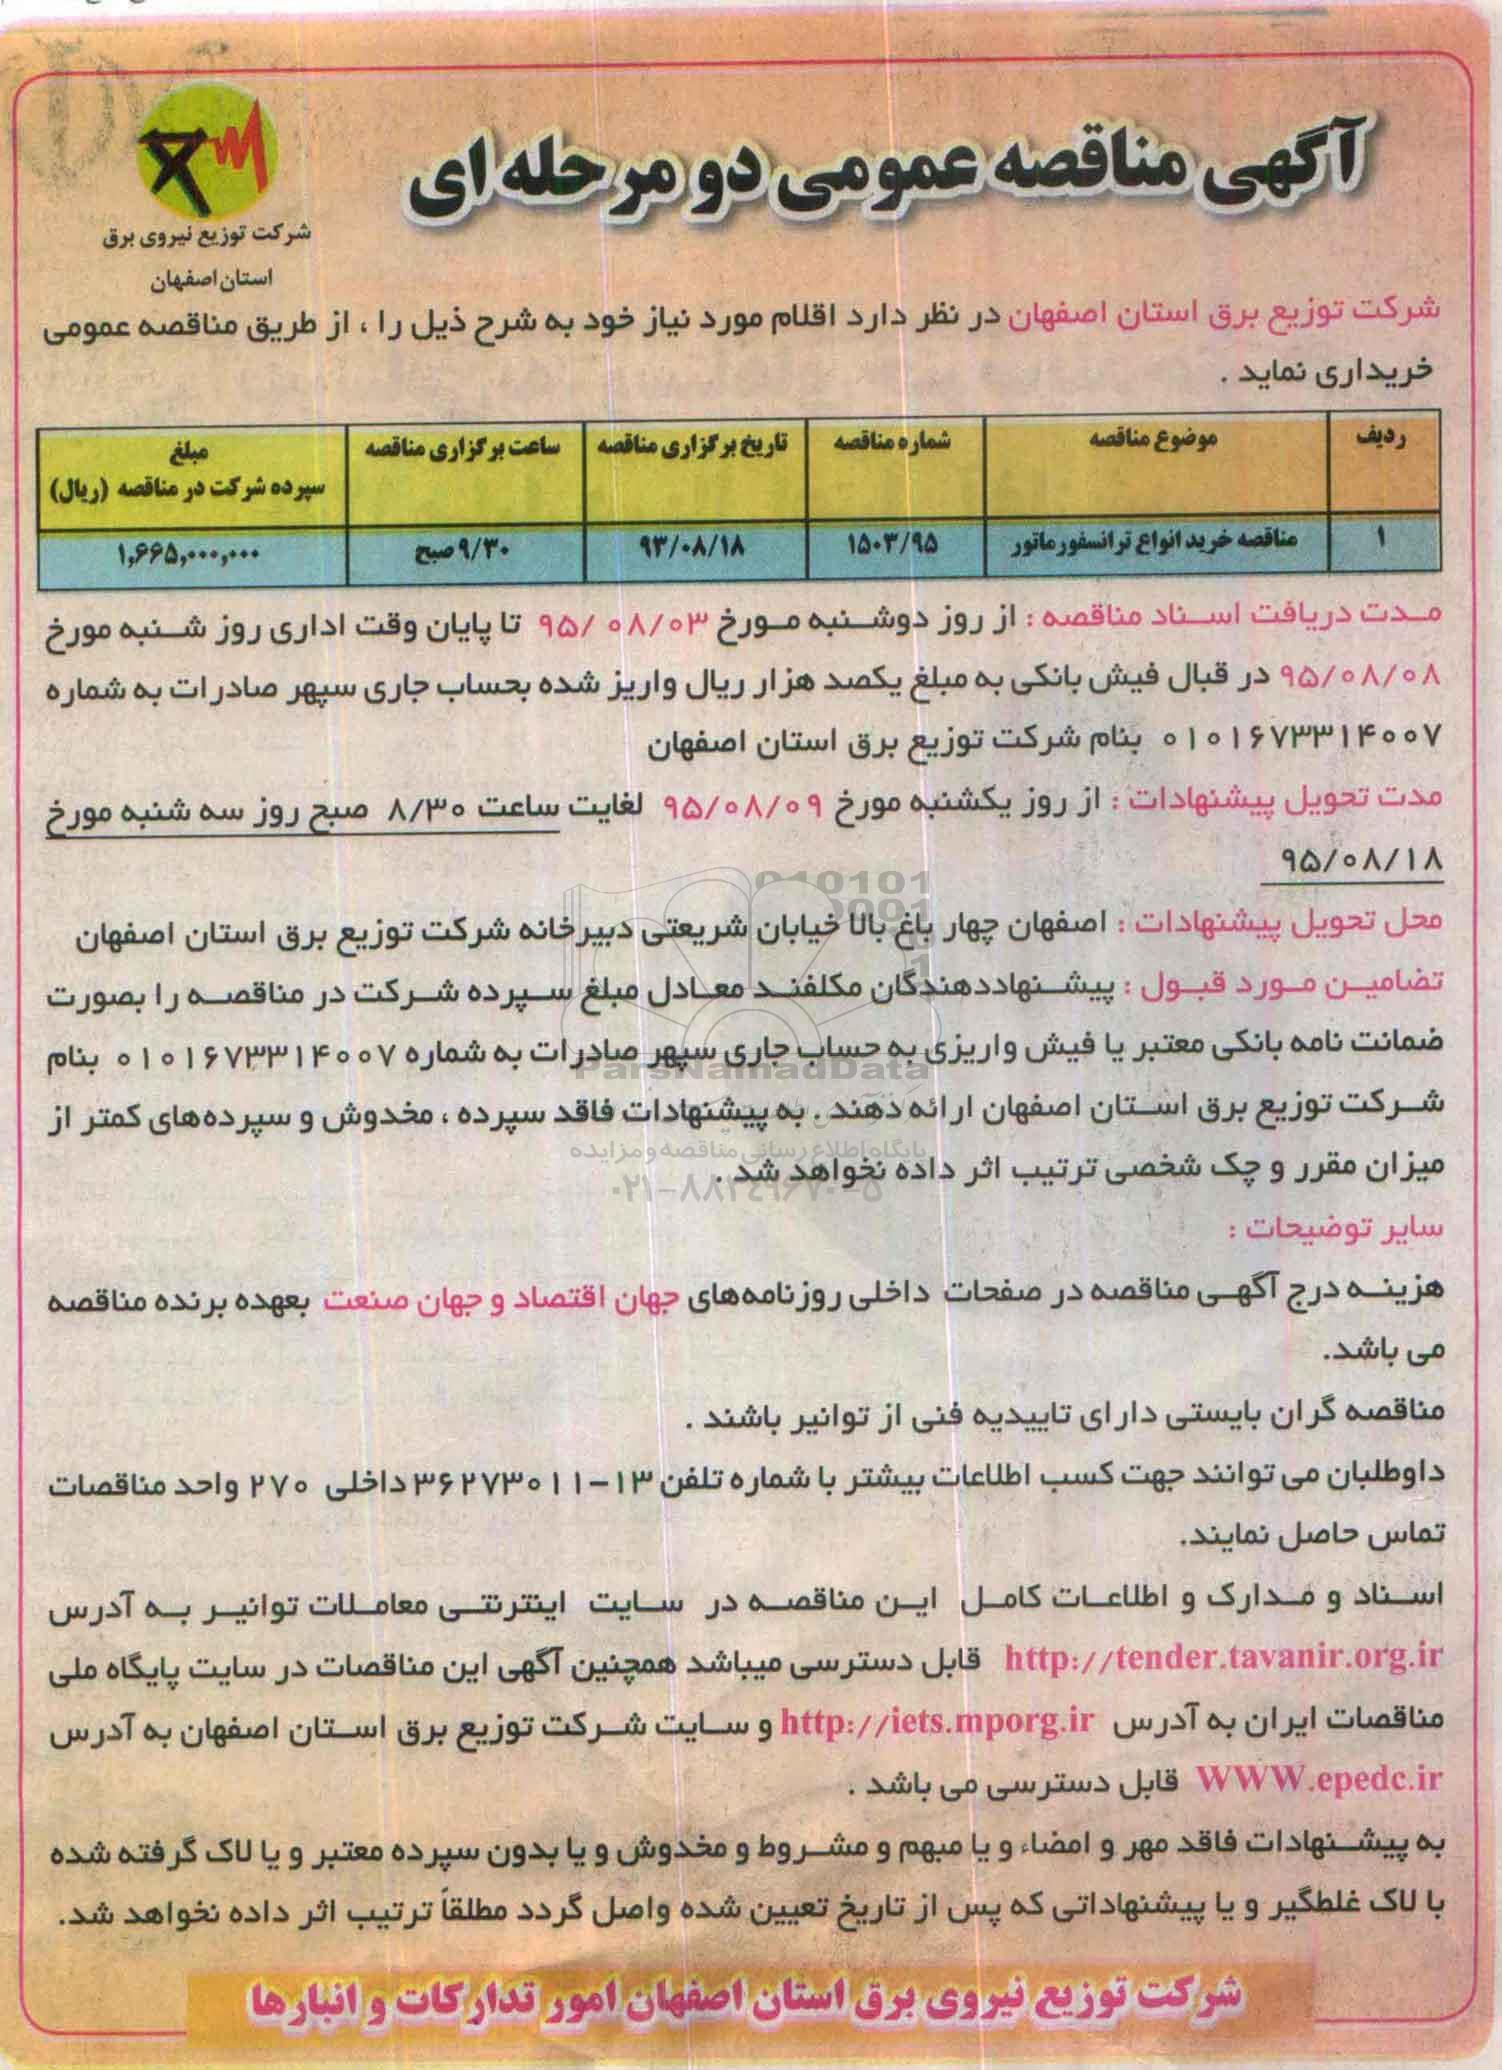 آگهی مناقصه عمومی دو مرحله ای
شرکت توزیع نیروی برق
استان اصفهان
شرکت توزیع برق استان اصفهان در نظر دارد اقلام مورد نیاز خود به شرح ذیل را ، از طریق مناقصه عمومی
خریداری نماید .
ردیف موضوع مناقصه شماره مناقصه تاریخ برگزاری مناقصه ساعت برگزاری مناقصه مبلغ
سپرده شرکت در مناقصه (ریال)
۱ مناقصه خرید انواع ترانسفورماتور ۱۵۰۳/۹۵ ۹۳/۰۸/۱۸ ۹/۳۰ صبح ۱,۶۶۵,۰۰۰,۰۰۰
مدت دریافت اسناد مناقصه : از روز دوشنبه مورخ ۹۵/ ۰۸/۰۳ تا پایان وقت اداری روز شنبه مورخ
۹۵/۰۸/۰۸ در قبال فیش بانکی به مبلغ یکصد هزار ریال واریز شده بحساب جاری سپهر صادرات به شماره
۰۱۰۱۶۷۳۳۱۴۰۰۷ بنام شرکت توزیع برق استان اصفهان
مدت تحویل پیشنهادات : از روز یکشنبه مورخ ۹۵/۰۸/۰۹ لغایت ساعت ۸/۳۰ صبح روز سه شنبه مورخ
۹۵/۰۸/۱۸
محل تحویل پیشنهادات : اصفهان چهار باغ بالا خیابان شریعتی دبیرخانه شرکت توزیع برق استان اصفهان
تضامین مورد قبول : پیشنهاددهندگان مکلفند معادل مبلغ سپرده شرکت در مناقصه را بصورت
ضمانت نامه بانکی معتبر یا فیش واریزی به حساب جاری سپهر صادرات به شماره ۰۱۰۱۶۷۳۳۱۴۰۰۷ بنام
شرکت توزیع برق استان اصفهان ارائه دهند . به پیشنهادات فاقد سپرده ، مخدوش و سپرده‌های کمتر از
میزان مقرر و چک شخصی ترتیب اثر داده نخواهد شد .
ParsNamadData
پایگاه اطلاع رسانی مناقصه و مزایده
۰۲۱-۸۸۳۴۹۶۷۰-۵
سایر توضیحات :
هزینه درج آگهی مناقصه در صفحات داخلی روزنامه‌های جهان اقتصاد و جهان صنعت بعهده برنده مناقصه
می باشد.
مناقصه گران بایستی دارای تاییدیه فنی از توانیر باشند .
داوطلبان می توانند جهت کسب اطلاعات بیشتر با شماره تلفن ۱۳-۳۶۲۷۳۰۱۱ داخلی ۲۷۰ واحد مناقصات
تماس حاصل نمایند.
اسناد و مدارک و اطلاعات کامل این مناقصه در سایت اینترنتی معاملات توانیر به آدرس
http://tender.tavanir.org.ir قابل دسترسی میباشد همچنین آگهی این مناقصات در سایت پایگاه ملی
مناقصات ایران به آدرس http://iets.mporg.ir و سایت شرکت توزیع برق استان اصفهان به آدرس
WWW.epedc.ir قابل دسترسی می باشد .
به پیشنهادات فاقد مهر و امضاء و یا مبهم و مشروط و مخدوش و یا بدون سپرده معتبر و یا لاک گرفته شده
با لاک غلطگیر و یا پیشنهاداتی که پس از تاریخ تعیین شده واصل گردد مطلقاً ترتیب اثر داده نخواهد شد.
شرکت توزیع نیروی برق استان اصفهان امور تدارکات و انبارها